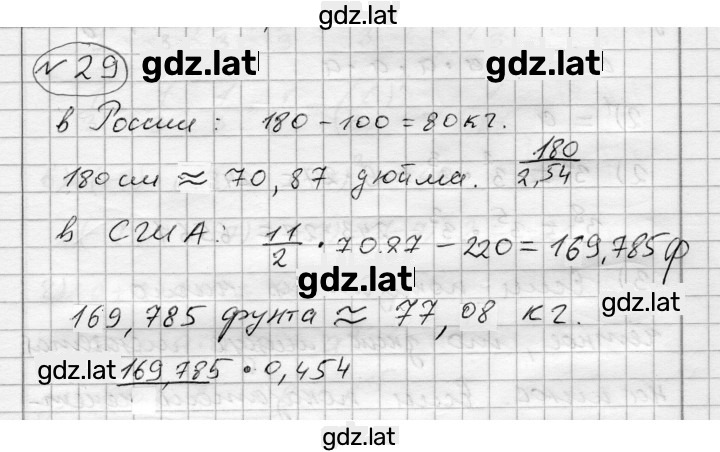 gdz.lat
№ 29 gdz.lat gdz.lat
в России: 180 - 100 = 80 кг.
180 см ≈ 70,87 дюйма. 180/2,54
в США: 11/2 • 70.87 - 220 = 169,785 ф
gdz.lat gdz.lat
169,785 фунта ≈ 77,08 кг.
gdz.lat 169,785 • 0,454
gdz.lat